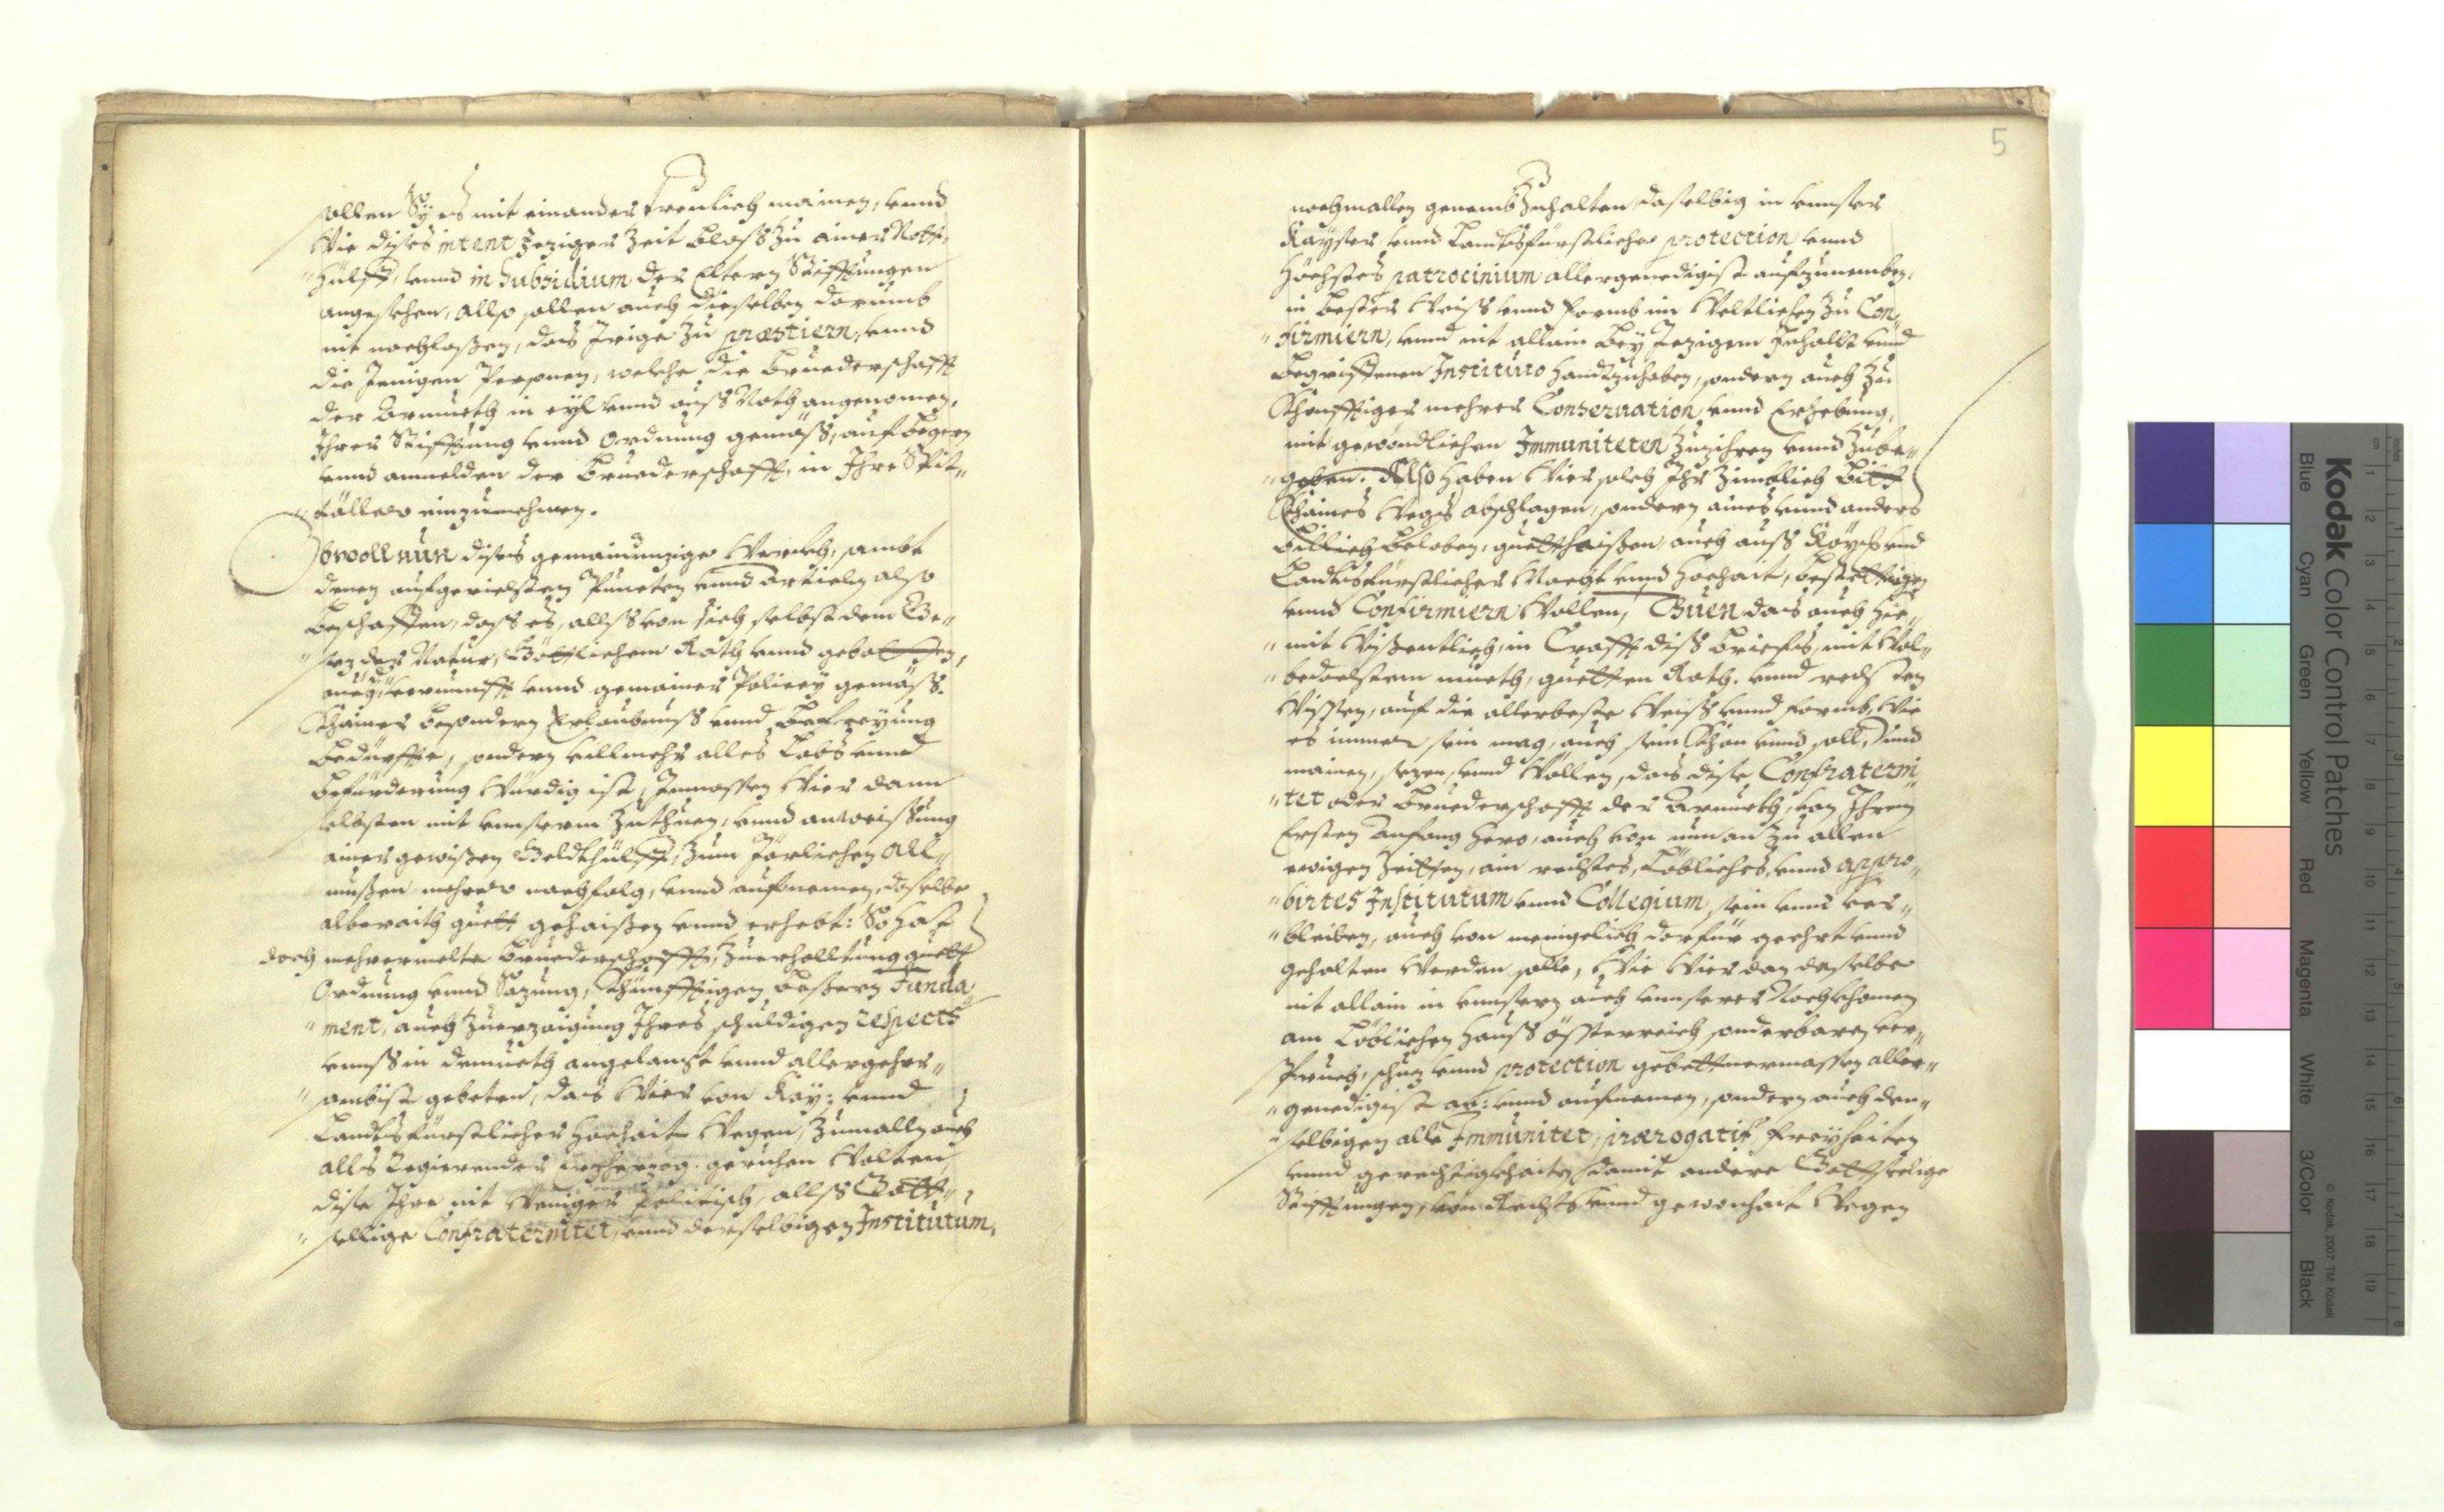 sollen Sÿ es mit einander treulich mainen, vnnd
Wie dises intent jeziger Zeit bloß zu ainer Nott„
„hülff, vnnd in Subsidium der Eltern Stifftungen
angesehen, also sollen auch dieselben darumb
nit nachlaßen, das Irige zu præstiern, vnnd
die Jenigen Personen, welche die Bruederschafft
der Armueth in eyl vnnd auß Noth angenomen,
Ihrer Stifftung vnnd Ordnung gemäß, auf begern
vnnd anmelden der Bruederschafft, in Ihre Spit„
„täller einzunehmen.
Obwoll nun dises gemainnuzige Werckh, sambt
denen aufgerichten Puncten vnnd Articln also
beschaffen, das es, alls von sich selbst dem Ge„
„sez der Natur, Göttlichem Rath vnnd gebotten,
auch vernunfft vnnd gemainer Policey gemäß.
Khainer besondern Erlaubnuß vnnd befreyung
bedürffte, sondern villmehr alles Lobs vnnd
befürderung Würdig ist, Inmassen Wier dann
selbsten mit vnnserm Zuthuen, vnnd anweissung
ainer gewißen Geldthülff, zum Järlichen All„
„mußen mehrer nachfolg, vnnd aufnemen, dasselbe
alberaith guett gehaißen vnnd erhebt: So hat
doch mehrermelte Bruederschafft, Zuerhalltung guett
Ordnung vnnd Sazung, Khünfftigen bessern Funda„
„ment, auch Zuerzaigung Ihres schuldigen respects
vnnß in demueth angelangt vnnd allergehor„
„sambist gebeten, das Wier von Kay: vnnd
Landtsfürstlicher Hochait Wegen, Zumalln auch
alls Regierender Erzherzog, geruhen Wolten,
dise Ihre nit Weniger Politisch, alls Gott„
„sellige Confraternitet, vnnd derselbigen Institutum,
5
nochmallen genemb Zuhalten, daselbig in vnnser
Kayser: vnnd Landtsfürstliche protection vnnd
Höchstes patrocinium allergenedigist aufzunemben,
in bester Weiß vnnd Formb im Weltlichen Zu Con„
„firmiern, vnnd nit allain bey Jezigem Inhallt vnnd
begriffenen Instituto Handtzuhaben, sondern auch Zu
Khonfftiger mehrer Conseruation vnnd Erhebung,
mit gewöndlichen Immuniteten Zuzihren vnnd Zube„
„gaben. Also haben Wier solch Ihr Zimblich Bitt
Khaines Wegs abschlagen, sondern aines vnnd anders
Billich beloben, guetthaißen, auch auß Kayß: vnd
Landtsfürstlicher Macht vnnd Hochait, bestettigen
vnnd Confirmiern Wollen, Thuen das auch Hie„
„mit Wißentlich, in Crafft diß Briefes, mit Wol„
„bedachtem mueth, guetten Rath, vnnd rechten
Wissen, auf die allerbeste Weiß vnnd Formb, Wie
es immer sein mag, auch sein Khan vnnd soll, vnnd
mainen, sezen, vnnd Wöllen, das dise Confraterni„
„tet oder Bruederschafft der Armueth, von Ihrem
Ersten Anfang hero, auch von nun an Zu allen
ewigen Zeitten, ain rechtes, Löbliches, vnnd appro„
„birtes Institutum vnnd Collegium, sein vnnd ver„
„bleiben, auch von menigelich darfür geehrt vnnd
gehalten Werden solle, Wie Wier dan dasselbe
nit allain in vnnsern auch vnnserer Nachkhomen
am Löblichen Hauß Össterreich sonderbaren ver„
spruch, schuz vnnd protection gebettnermassen aller„
„genedigist an: vnnd aufnemen, sondern auch der„
„selbigen alle Immunitet, prærogatif, Freyhaiten
vnnd gerechtigkhaiten, damit andere Gottseelige
Stifftungen, von Rechts vnnd gewonhait Wegen
Kodak Color Control Patches
Blue Cyan Green Yellow Red Magenta White 3/Color Black
© Kodak, 2007 TM: Kodak